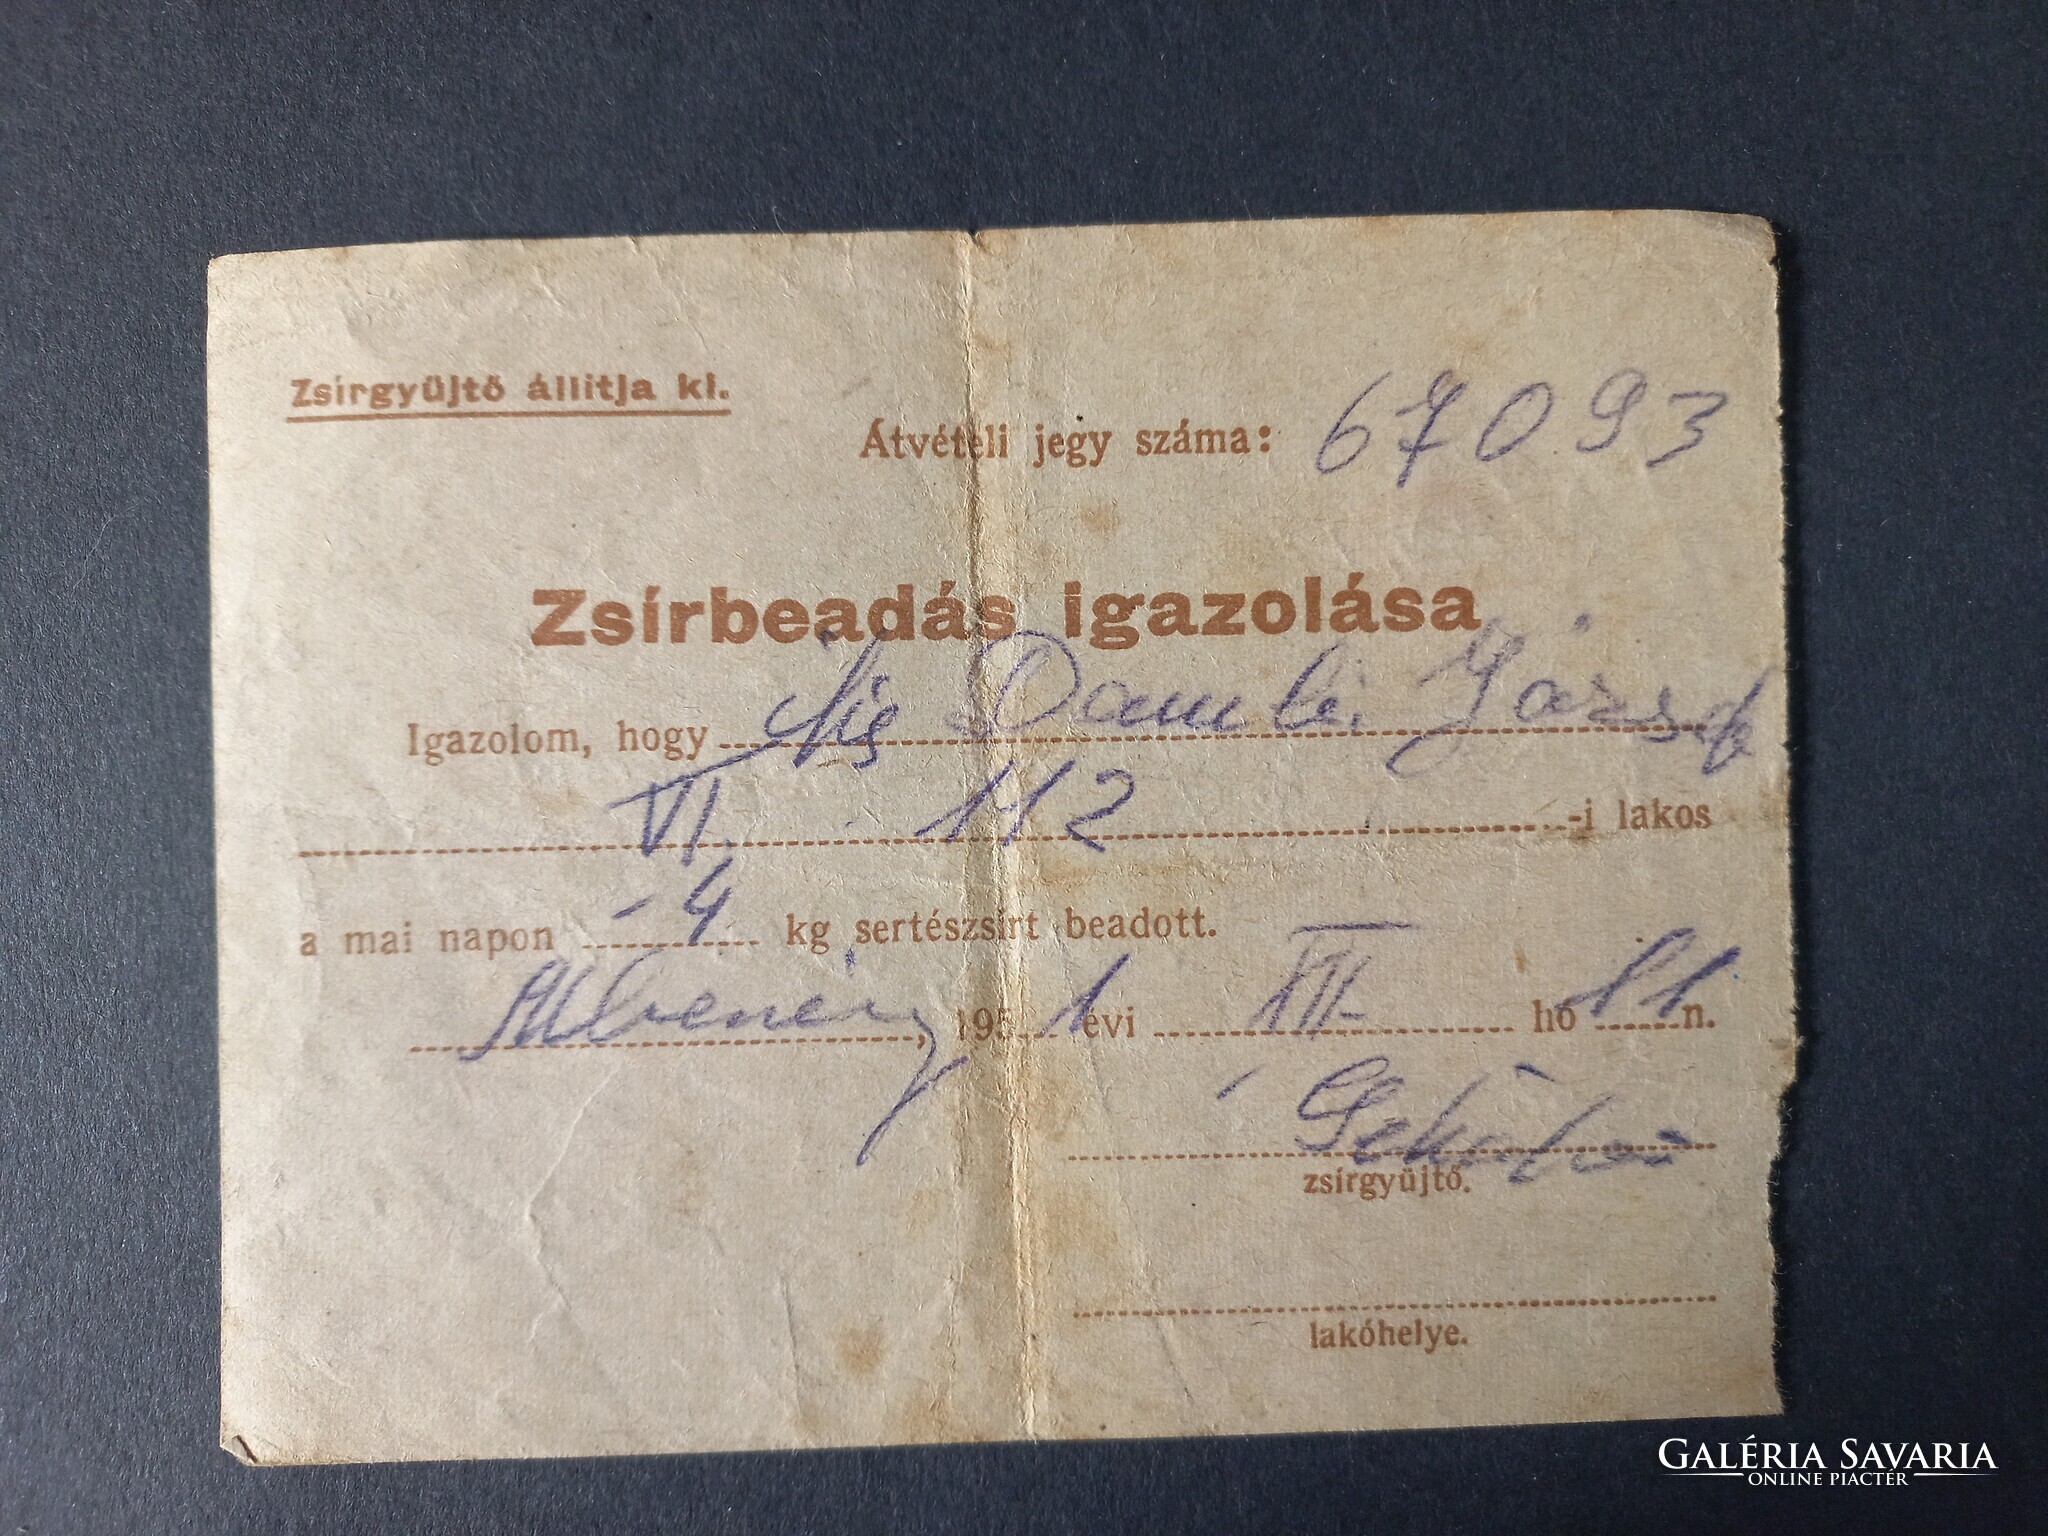 Zsírgyűjtő állitja ki.
Átvételi jegy száma: 67093
Zsírbeadás igazolása
Igazolom, hogy
VI. 112 -i lakos
a mai napon -4 kg sertészsírt beadott.
, 1951 évi III. hó 11 n.
zsírgyűjtő.
lakóhelye.
GALÉRIA SAVARIA
ONLINE PIACTÉR